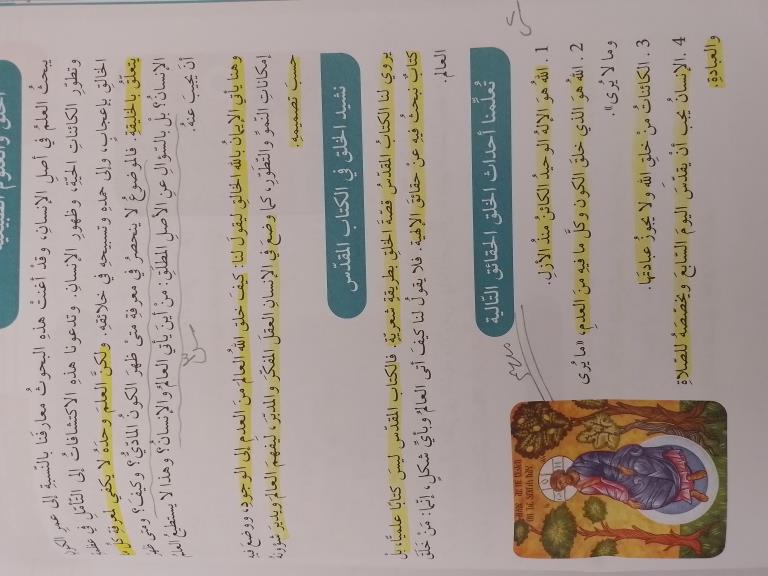 الخلق والعلوم الطبيعية
يبحثُ العلمُ في أصلِ الإنسانِ، وقدْ أغنتْ هذهِ البحوثُ معارفَنا بالنّسبةِ إلى عمرِ الكونِ
وتطوّرِ الكائناتِ الحيّةِ، وظهورِ الإنسانِ. وتدعونا هذهِ الاكتشافاتُ إلى التّأمّلِ في عظمةِ
الخالقِ بإعجابٍ، وإلى حمدِه وتسبيحِه في خلائقِه. ولكنَّ العلمَ وحدَهُ لا يكفي لمعرفةِ كلِّ ما
يتعلّقُ بالخليقةِ. فالموضوعُ لا ينحصرُ في معرفةِ متىْ ظهرَ الكونُ المادّيُّ؟ وكيفَ؟ ومتى ظهرَ
الإنسانُ؟ بلْ بالسّؤالِ عنِ الأصلِ المطلقِ: منْ أينَ يأتي العالمُ والإنسانُ؟ وهذا لا يستطيعُ العلمُ
أنْ يجيبَ عنهُ.
وهنا يأتي الإيمانُ باللهِ الخالقِ ليقولَ لنا: كيفَ خلقَ اللهُ العالمَ منَ العدمِ إلى الوجودِ، ووضعَ فيهِ
إمكاناتِ النّموِّ والتّطوّرِ، كما وضعَ في الإنسانِ العقلَ المفكّرَ والمدبّرَ، ليفهمَ العالمَ ويديرَ شؤونَهُ
حسبَ تصميمِه.
نشيد الخلق في الكتاب المقدّس
يروي لنا الكتابُ المقدّسُ قصّةَ الخلقِ بطريقةٍ شعريّةٍ. فالكتابُ المقدّسُ ليسَ كتابًا علميًّا، بلْ
كتابٌ نبحثُ فيهِ عنْ حقائقَ الإلهيّةِ. فلا يقولُ لنا كيفَ أتى العالمُ وبأيِّ شكلٍ، إنّما: مَنْ خَلَقَ
العالم.
تُعلّمنا أحداث الخلق الحقائق التّالية
مهم
1. اللهُ هوَ الإلهُ الوحيدُ الكائنُ منذُ الأزلِ.
2. اللهُ هوَ الذي خلقَ الكونَ وكلَّ ما فيهِ منَ العدمِ، «ما يُرى
وما لا يُرى».
3. الكائناتُ منْ خلقِ اللهِ ولا يجوزُ عبادتُها.
4. الإنسانُ يجبُ أنْ يقدّسَ اليومَ السّابعَ ويخصّصَهُ للصّلاةِ
والعبادةِ.